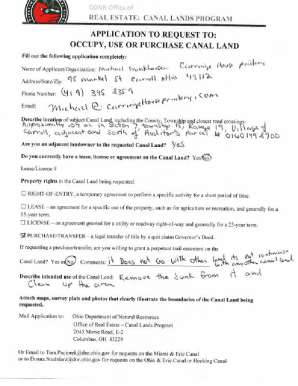 ODNR Office of
REAL ESTATE: CANAL LANDS PROGRAM
APPLICATION TO REQUEST TO:
OCCUPY, USE OR PURCHASE CANAL LAND
Fill out the following application completely:
Name of Applicant/Organization: Michael Carriage House printery
Address/State/Zip: 95 Market St Carroll Ohio 43112
Phone Number: (419) 345 2359
Email: Michael@CarriageHousePrintery.com
Describe location of subject Canal Land, including the County, Township and closest road crossings:
Approximate Township 15, Range 19, Village of
Carroll, adjacent and South of Auditor's parcel #
Are you an adjacent landowner to the requested Canal Land? Yes
Do you currently have a lease, license or agreement on the Canal Land? Yes/No
Lease/License #
Property rights to the Canal Land being requested:
☐ RIGHT-OF-ENTRY, a temporary agreement to perform a specific activity for a short period of time.
☐ LEASE – an agreement for a specific use of the property, such as for agriculture or recreation, and generally for a
15-year term.
☐ LICENSE – an agreement granted for a utility or roadway right-of-way and generally for a 25-year term.
☑ PURCHASE/TRANSFER – a legal transfer of title by a quit claim Governor's Deed.
If requesting a purchase/transfer, are you willing to grant a perpetual trail easement on the
Canal Land? Yes/No Comments: it Does not Go with other land its not continuous
with any other canal land
Describe intended use of the Canal Land: Remove the Junk from it and
Clean up the area
Attach maps, survey plats and photos that clearly illustrate the boundaries of the Canal Land being
requested.
Mail Application to: Ohio Department of Natural Resources
Office of Real Estate – Canal Lands Program
2045 Morse Road, E-2
Columbus, OH 43229
Or Email to for requests on the Miami & Erie Canal
or to for requests on the Ohio & Erie Canal or Hocking Canal